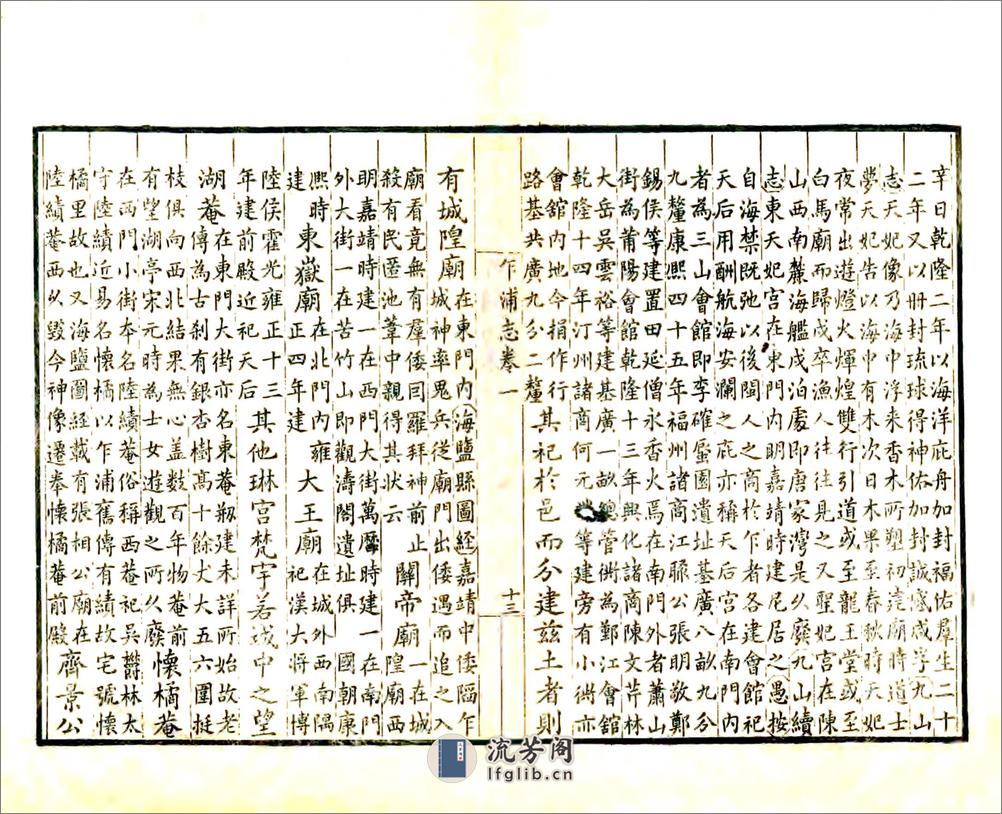 辛日乾隆二年以海洋庇舟加封福佑羣生二十
二年又以册封琉球得神佑加封誠感咸孚九山
志天妃像乃海中浮来香木所塑初建廟時道士
夢天妃告以海中有木次日木果至春秋時天妃
夜常出遊燈火煇煌雙行引道或至龍王堂或至
白馬廟而歸戍卒漁人往往見之又聖妃宮在陳
山西南麓海艦戍泊處即唐家灣是久廢九山續
志東天妃宮在東門内明嘉靖時建尼居之愚按
自海禁既弛以後閩人之商於乍者各建會館祀
天后用酬航海安瀾之庇亦稱天后宮在南門内
者為三山會館即李確蜃園遺址基廣八畝九分
九釐康熙四十五年福州諸商江聯公張明敬鄭
錫侯等建置田延僧永香火焉在南門外者蕭山
街為莆陽會館乾隆十三年興化諸商陳文芹林
大岳吳雲裕等建基廣一畝總管衖為鄞江會館
乾隆十四年汀州諸商何元等建旁有小衖亦
會舘内地今捐作行
路基共廣九分二釐
其祀於邑而分建茲土者則
乍浦志卷一
十三
有城隍廟
在東門内海鹽縣圖経嘉靖中倭隘乍
城神率鬼兵従廟門出倭遇而追之入
廟看竟無有羣倭囘羅拜神前止
殺有民匿池葦中親得其狀云
關帝廟
一在城
隍廟西
明嘉靖時建一在西門大街萬厯時建一在南門
外大街一在苦竹山即觀濤閣遺址俱 國朝康
熙時
建
東嶽廟
在北門内雍
正四年建
大王廟
在城外西南隅
祀漢大將軍博
陸侯霍光雍正十三
年建前殿近祀天后
其他琳宮梵宇若城中之望
湖菴
在東門大街亦名東菴剏建未詳所始故老
傳為古刹有銀杏樹高十餘丈大五六圍挺
枝俱向西北結果無心盖数百年物菴前
有望湖亭宋元時為士女遊觀之所久廢
懷橘菴
在西門小街本名陸績菴俗稱西菴祀吳欎林太
守陸績近易名懷橘以乍浦舊傳有績故宅號懷
橘里故也又海鹽圖経載有張相公廟在
陸績菴西以毁今神像遷奉懷橘菴前殿
齊景公
流芳阁
lfglib.cn